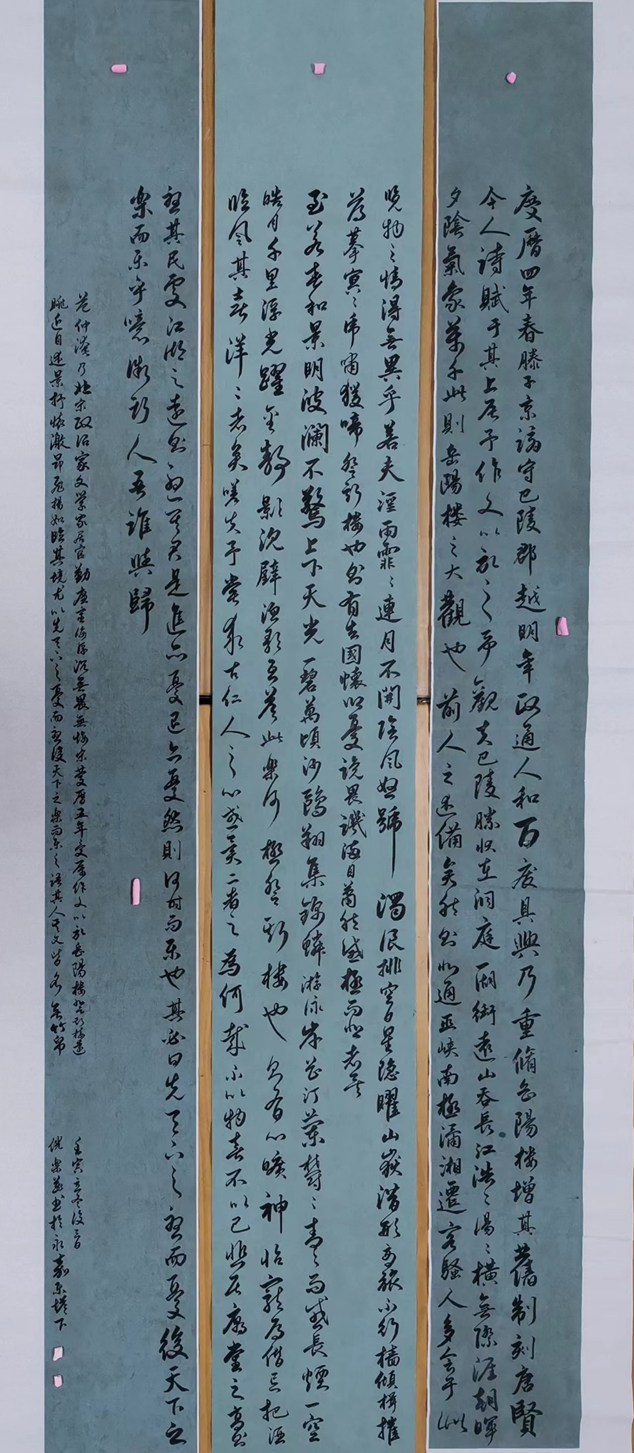 慶曆四年春滕子京謫守巴陵郡越明年政通人和百廢具興乃重脩岳陽樓增其舊制刻唐賢
今人詩賦于其上屬予作文以記之予觀夫巴陵勝狀在洞庭一湖銜遠山吞長江浩々湯々橫無際涯朝暉
夕陰氣象萬千此則岳陽樓之大觀也前人之述備矣然則北通巫峽南極瀟湘遷客騷人多會于此
覽物之情得無異乎若夫淫雨霏々連月不開陰風怒號濁浪排空日星隱曜山嶽潛形商旅不行檣傾楫摧
薄暮冥々虎嘯猿啼登斯樓也則有去國懷鄉憂讒畏譏滿目蕭然感極而悲者矣
至若春和景明波瀾不驚上下天光一碧萬頃沙鷗翔集錦鱗游泳岸芷汀蘭鬱々青々而或長煙一空
皓月千里浮光躍金靜影沉璧漁歌互答此樂何極登斯樓也則有心曠神怡寵辱偕忘把酒
臨風其喜洋々者矣嗟夫予嘗求古仁人之心或異二者之為何哉不以物喜不以己悲居廟堂之高則
憂其民處江湖之遠則憂其君是進亦憂退亦憂然則何時而樂也其必曰先天下之憂而憂後天下之
樂而樂乎噫微斯人吾誰與歸
范仲淹乃北宋政治家文學家居官勤廉宋慶曆五年文厝作文以記岳陽樓登斯樓遠
眺近自述景抒懷激昂飛揚如臨其境尤以先天下之憂而憂後天下之樂而樂之語其人其文皆
壬寅立冬後三日
書於永嘉東塔下